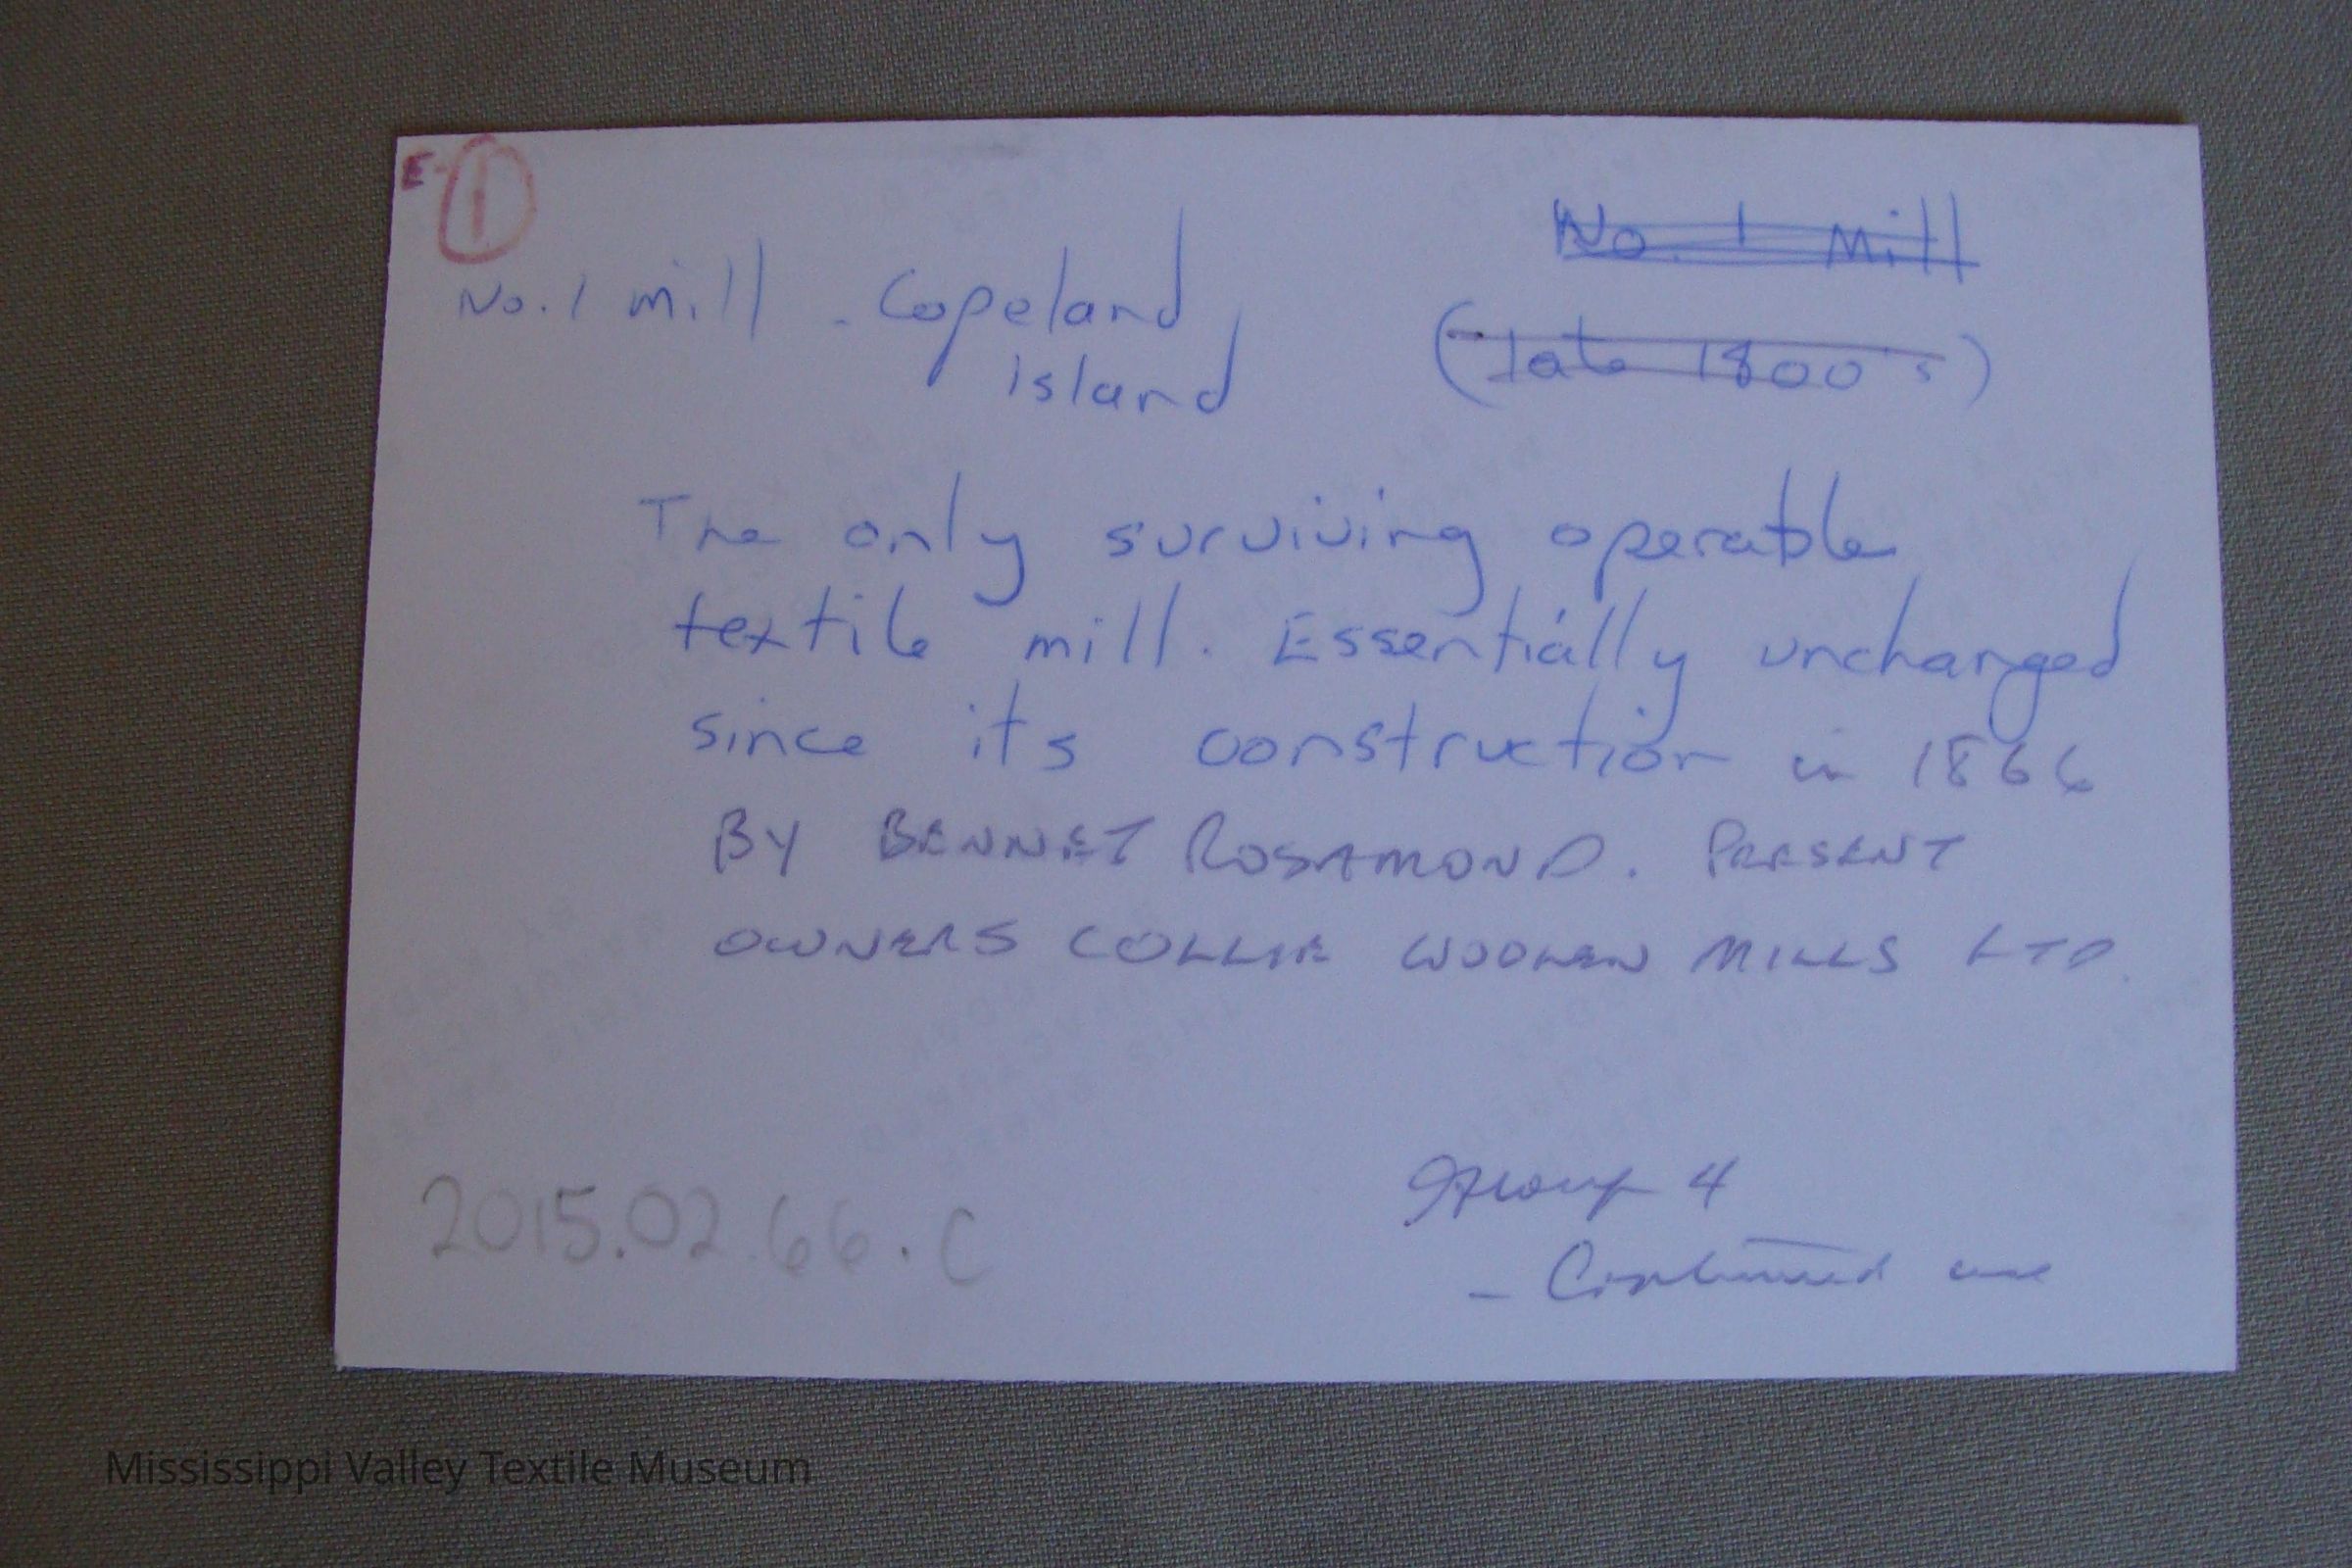 E-1
No. 1 mill - Copeland
island
No. 1 Mill
(late 1800's)
The only surviving operable
textile mill. Essentially unchanged
since its construction in 1866
BY BENNET ROSAMOND. PRESENT
OWNERS COLLIE WOOLEN MILLS LTD.
2015.02.66.C
Group 4
- Continued use
Mississippi Valley Textile Museum